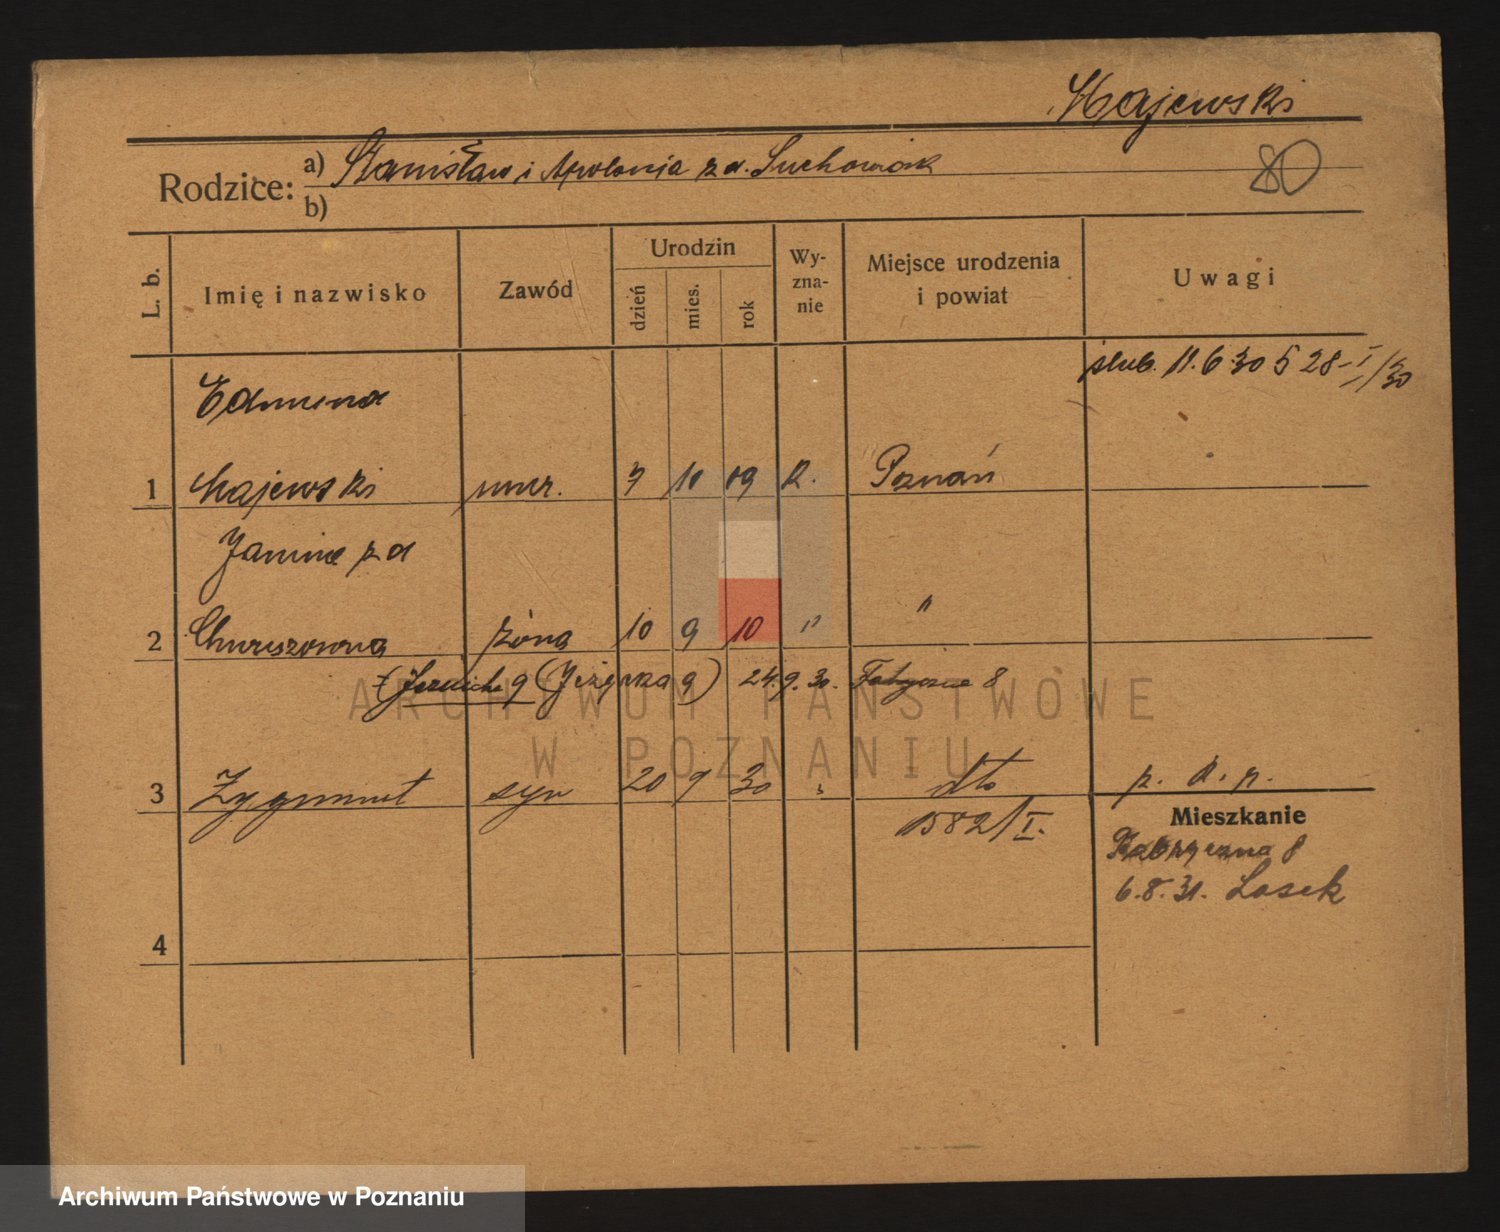 Majewski
Rodzice: a) Stanisław i Apolonia z d. Suchowiak
b)
80
L. b.
Imię i nazwisko
Zawód
Urodzin
dzień
mies.
rok
Wy-
zna-
nie
Miejsce urodzenia
i powiat
Uwagi
ślub. 11.6 30 5 28
Edmund
1 Majewski mur. 7 10 09 R. Poznań
Janina z d
2 żona 10 9 10 " "
9 (Jeżycka 9) 24.9.30. 8
3 Zygmunt syn 20 9 30 " dto p. R. p.
1582/I.
Mieszkanie
Fabryczna 8
6.8.31. Lasek
4
ARCHIWUM PAŃSTWOWE
W POZNANIU
Archiwum Państwowe w Poznaniu